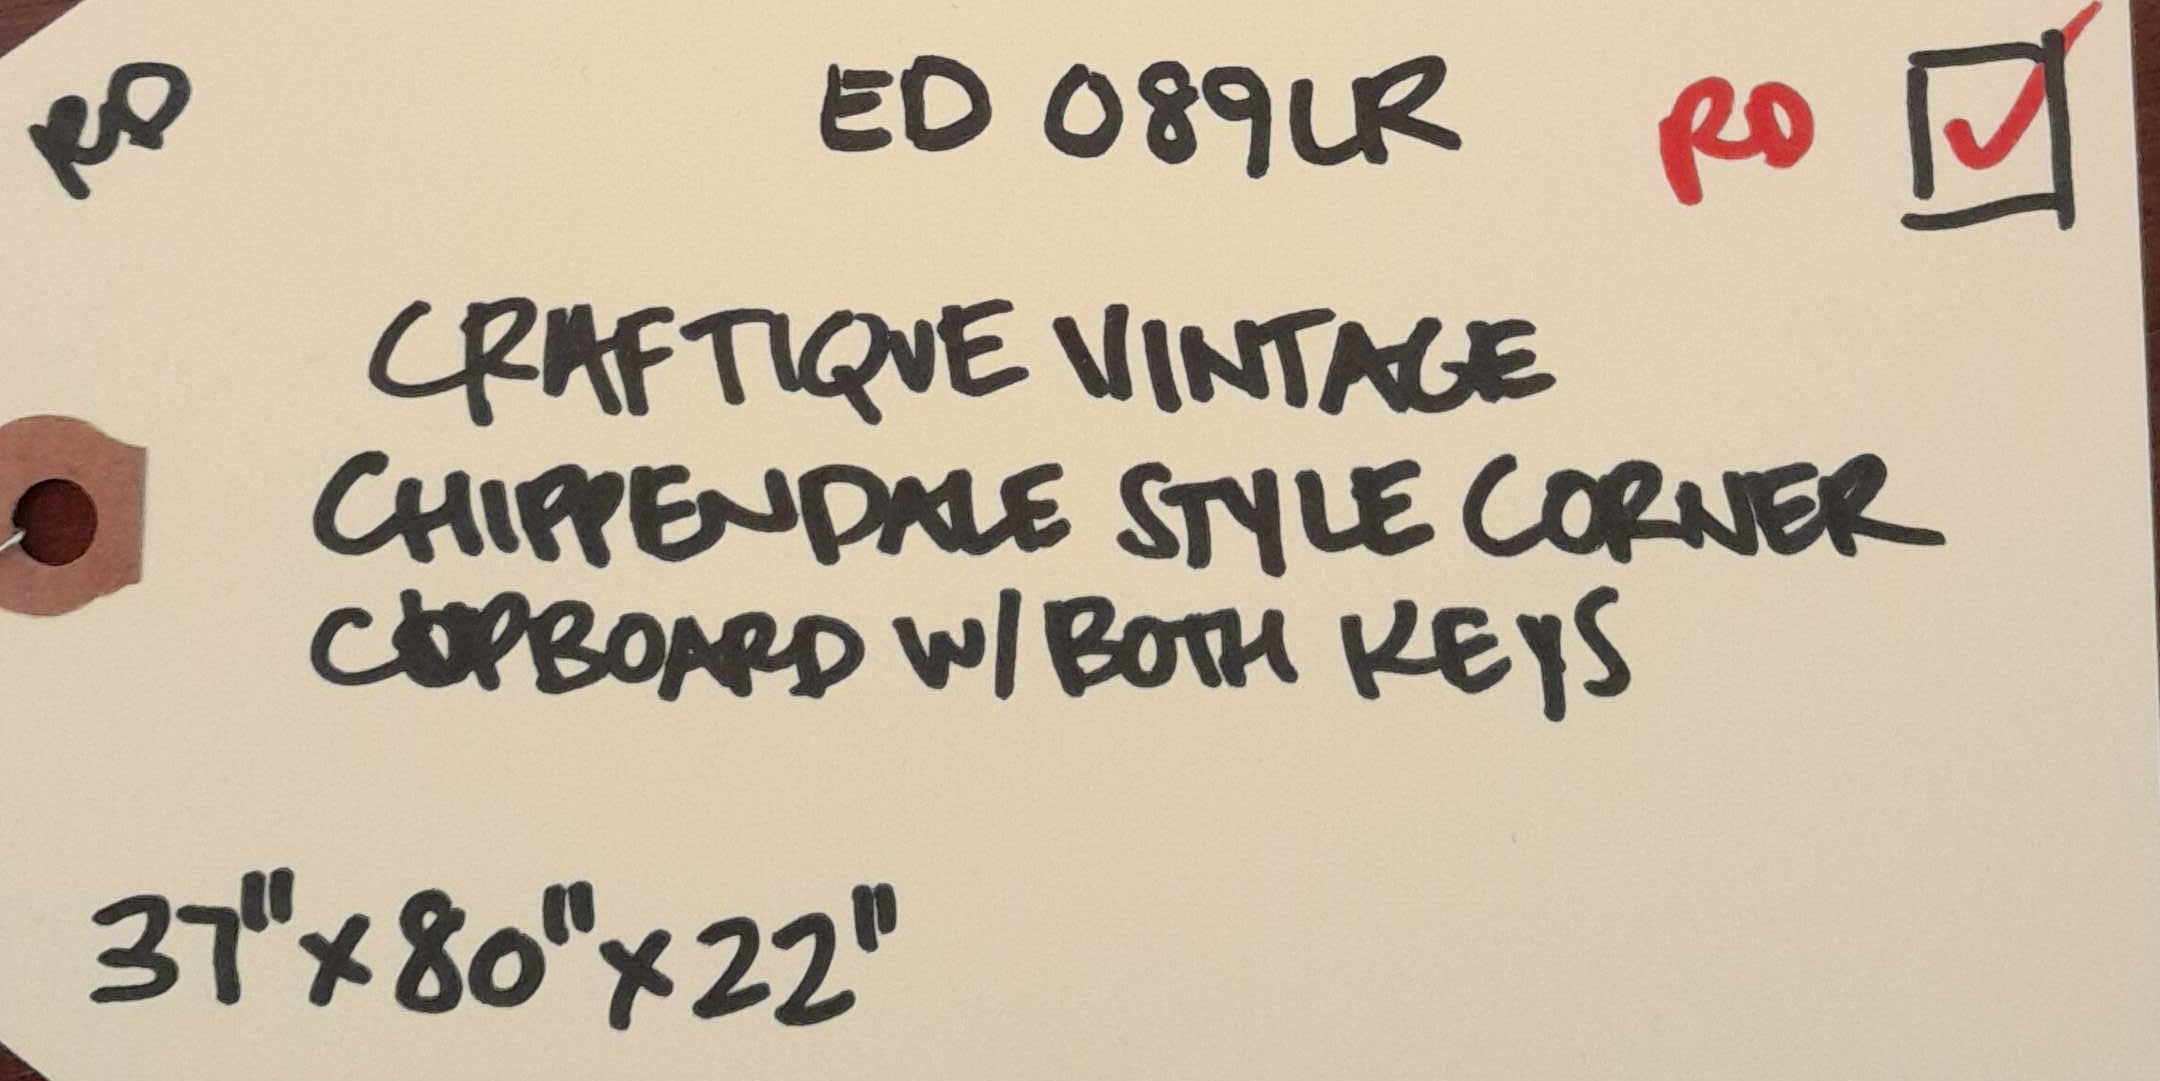 RD ED 089LR RD
CRAFTIQUE VINTAGE
CHIPPENDALE STYLE CORNER
CUPBOARD W/ BOTH KEYS
37" x 80" x 22"